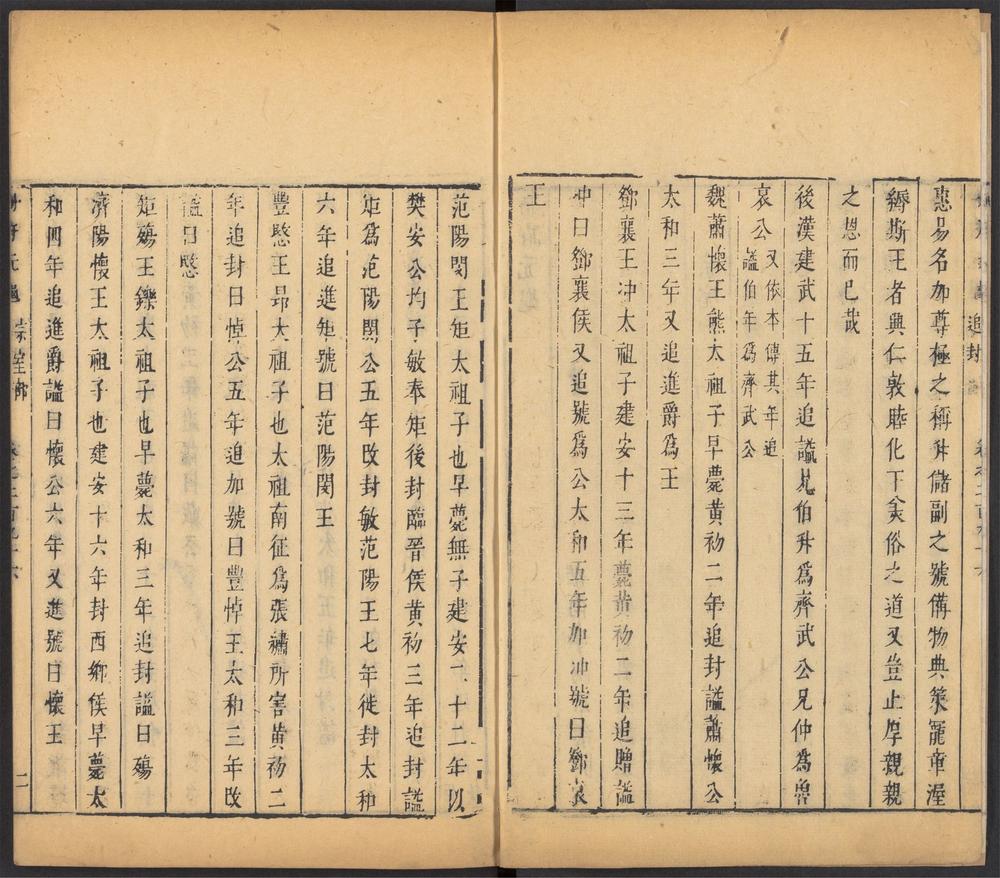 追封
惠易名加尊極之稱升儲副之號備物典策寵章渥
縟斯王者典仁敦睦化下美俗之道又豈止厚親親
之恩而已哉
後漢建武十五年追諡兄伯升爲齊武公兄仲爲魯
哀公又依本傳其年追
諡伯年爲齊武公
魏蕭懷王熊太祖子早薨黃初二年追封諡蕭懷公
太和三年又追進爵爲王
鄧襄王冲太祖子建安十三年薨黃初二年追贈諡
冲曰鄧襄侯又追號爲公太和五年加冲號曰鄧哀
王
范陽閔王矩太祖子也早薨無子建安二十二年以
樊安公均子敏奉矩後封臨晉侯黃初三年追封諡
矩爲范陽閔公五年改封敏范陽王七年徙封太和
六年追進矩號曰范陽閔王
豐愍王昂太祖子也太祖南征爲張繡所害黃初二
年追封曰悼公五年追加號曰豐悼王太和三年改
諡曰愍
矩殤王鑠太祖子也早薨太和三年追封諡曰殤
濟陽懷王太祖子也建安十六年封西鄉侯早薨太
和四年追進爵諡曰懷公六年又進號曰懷王
册府元龜 宗室部
二